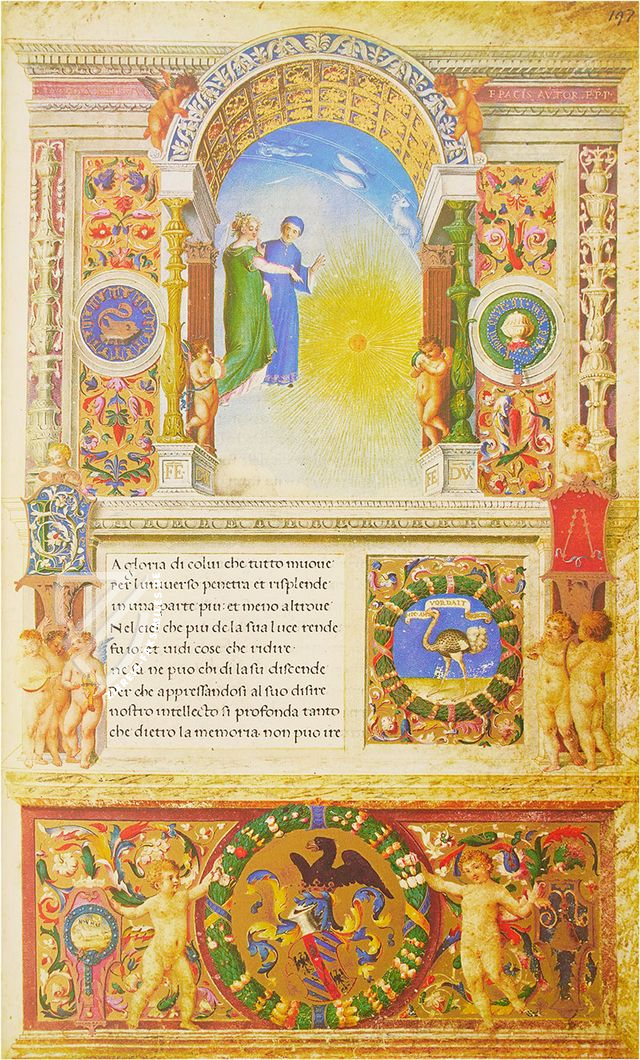 197
E PACIS AVTOR
FE
FE DVX
A gloria di colui che tutto muoue
Per l'uniuerso penetra et risplende
in una parte piu: et meno altroue
Nel ciel che piu de la sua luce rende
fu io: et uidi cose che ridire
ne sa ne puo chi di la su discende
Per che appressandosi al suo disire
nostro intellecto si profonda tanto
che dietro la memoria non puo ire
VORDAIT